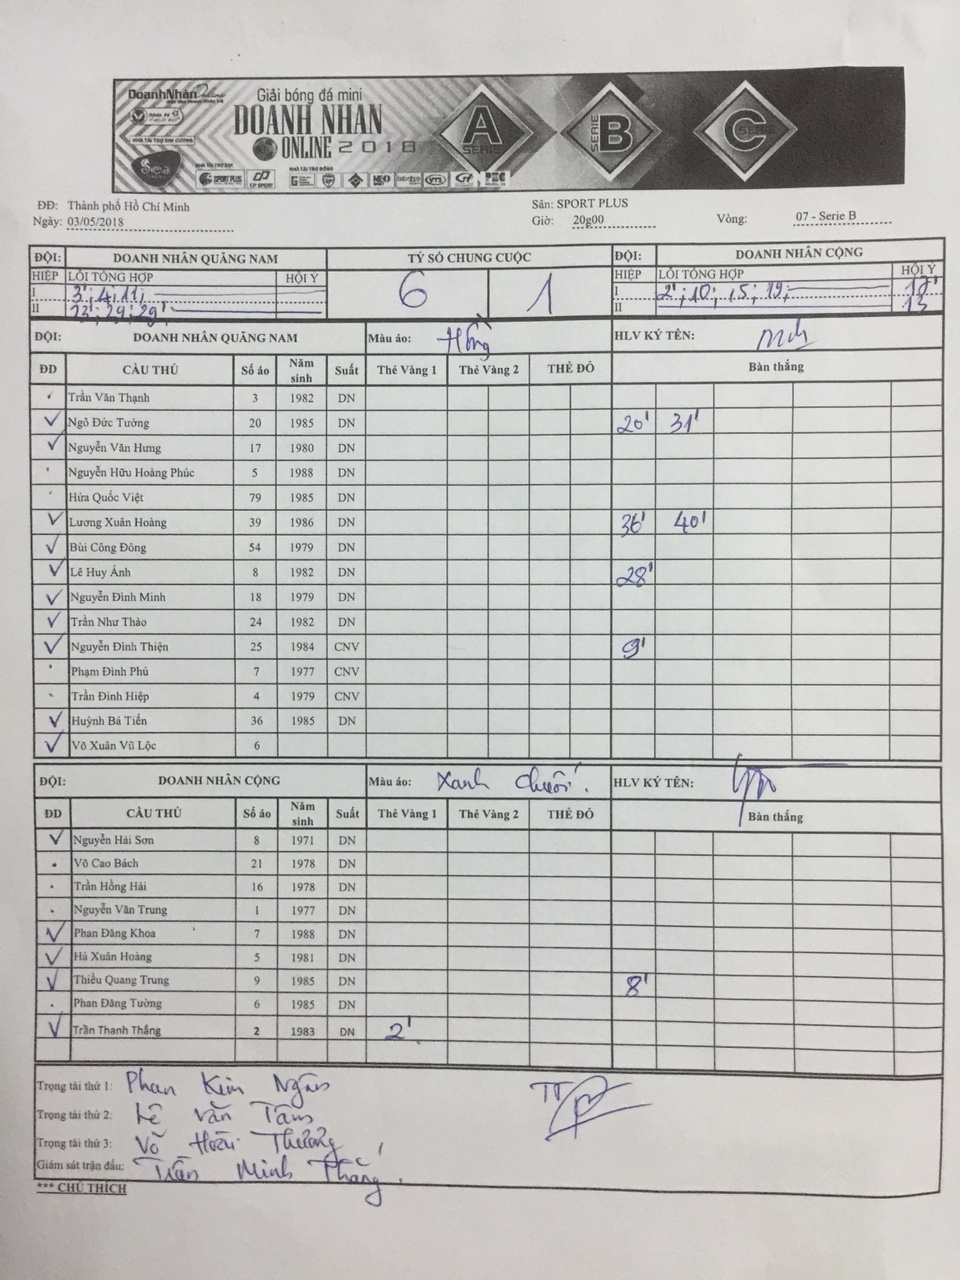 DoanhNhanOnline
NHÀ TÀI TRỢ KIM CƯƠNG
Sea
Giải bóng đá mini
DOANH NHAN
ONLINE 2018
NHÀ TÀI TRỢ BẠC
SPORT PLUS
CP SPORT
NHÀ TÀI TRỢ ĐỒNG
NEO
A SERIE
SERIE B
C SERIE
ĐĐ: Thành phố Hồ Chí Minh Sân: SPORT PLUS
Ngày: 03/05/2018 Giờ: 20g00 Vòng: 07 - Serie B
ĐỘI: DOANH NHÂN QUẢNG NAM TỶ SỐ CHUNG CUỘC ĐỘI: DOANH NHÂN CỘNG
HIỆP LỖI TỔNG HỢP HỘI Ý 6 1 HIỆP LỖI TỔNG HỢP HỘI Ý
I 3'; 4; 11; I 2'; 10; 15; 19; 17'
II 29' II 13
ĐỘI: DOANH NHÂN QUẢNG NAM Màu áo: Hồng HLV KÝ TÊN:
ĐD CẦU THỦ Số áo Năm sinh Suất Thẻ Vàng 1 Thẻ Vàng 2 THẺ ĐỎ Bàn thắng
Trần Văn Thạnh 3 1982 DN
✓ Ngô Đức Tường 20 1985 DN 20' 31'
✓ Nguyễn Văn Hưng 17 1980 DN
Nguyễn Hữu Hoàng Phúc 5 1988 DN
Hứa Quốc Việt 79 1985 DN
✓ Lương Xuân Hoàng 39 1986 DN 36' 40'
✓ Bùi Công Đông 54 1979 DN
✓ Lê Huy Ánh 8 1982 DN 28'
✓ Nguyễn Đình Minh 18 1979 DN
✓ Trần Như Thảo 24 1982 DN
✓ Nguyễn Đình Thiện 25 1984 CNV 9'
Phạm Đình Phú 7 1977 CNV
Trần Đình Hiệp 4 1979 CNV
✓ Huỳnh Bá Tiến 36 1985 DN
✓ Võ Xuân Vũ Lộc 6
ĐỘI: DOANH NHÂN CỘNG Màu áo: Xanh chuối. HLV KÝ TÊN:
ĐD CẦU THỦ Số áo Năm sinh Suất Thẻ Vàng 1 Thẻ Vàng 2 THẺ ĐỎ Bàn thắng
✓ Nguyễn Hải Sơn 8 1971 DN
Võ Cao Bách 21 1978 DN
Trần Hồng Hải 16 1978 DN
Nguyễn Văn Trung 1 1977 DN
✓ Phan Đăng Khoa 7 1988 DN
✓ Hà Xuân Hoàng 5 1981 DN
✓ Thiều Quang Trung 9 1985 DN 8'
Phan Đăng Tường 6 1985 DN
✓ Trần Thanh Thắng 2 1983 DN 2'
Trọng tài thứ 1: Phan Kim Ngân
Trọng tài thứ 2: Lê Văn Tâm
Trọng tài thứ 3: Võ Hoài Thưởng
Giám sát trận đấu: Trần Minh Thắng.
*** CHÚ THÍCH